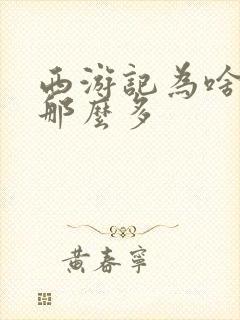 西游記為啥
那麼多
黃春寧